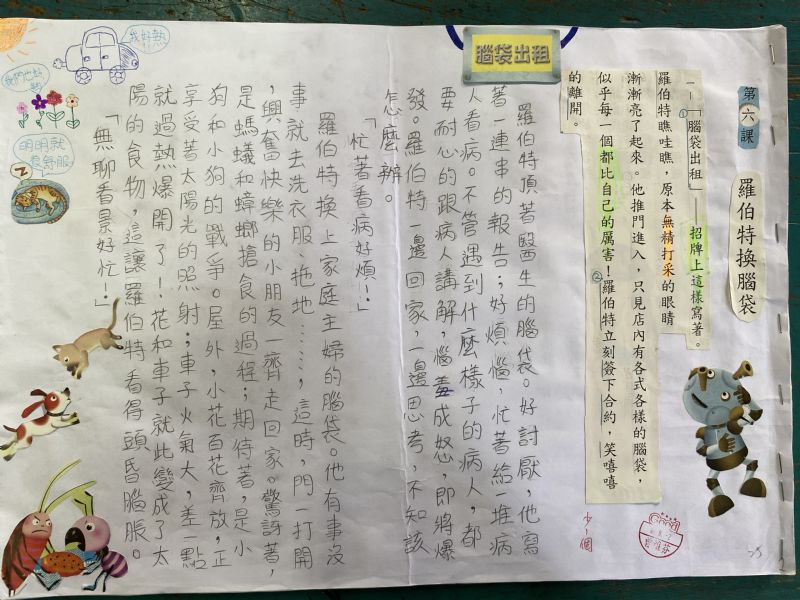 第六課
羅伯特換腦袋
一「腦袋出租」——招牌上這樣寫著。
羅伯特瞧哇瞧，原本無精打采的眼睛
漸漸亮了起來。他推門進入，只見店內有各式各樣的腦袋，
似乎每一個都比自己的厲害！羅伯特立刻簽下合約，笑嘻嘻
的離開。
①
②
少1個
Good
腦袋出租
羅伯特頂著醫生的腦袋。好討厭，他寫
著一連串的報告；好煩惱，忙著給一堆病
人看病。不管遇到什麼樣子的病人，都
要耐心的跟病人講解，惱羞成怒，即將爆
發。羅伯特一邊回家，一邊思考，不知該
怎麼辦。
「忙著看病好煩！」
羅伯特換上家庭主婦的腦袋。他有事沒
事就去洗衣服、拖地……，這時，門一打開
，興奮快樂的小朋友一齊走回家。驚訝著，
是螞蟻和蟑螂搶食的過程；期待著，是小
狗和小狗的戰爭。屋外，小花百花齊放，正
享受著太陽光的照射；車子火氣大，差一點
就過熱爆開了！花和車子就此變成了太
陽的食物，這讓羅伯特看得頭昏腦脹。
「無聊看景好忙！」
我好熱
明明就
要舒服
Z